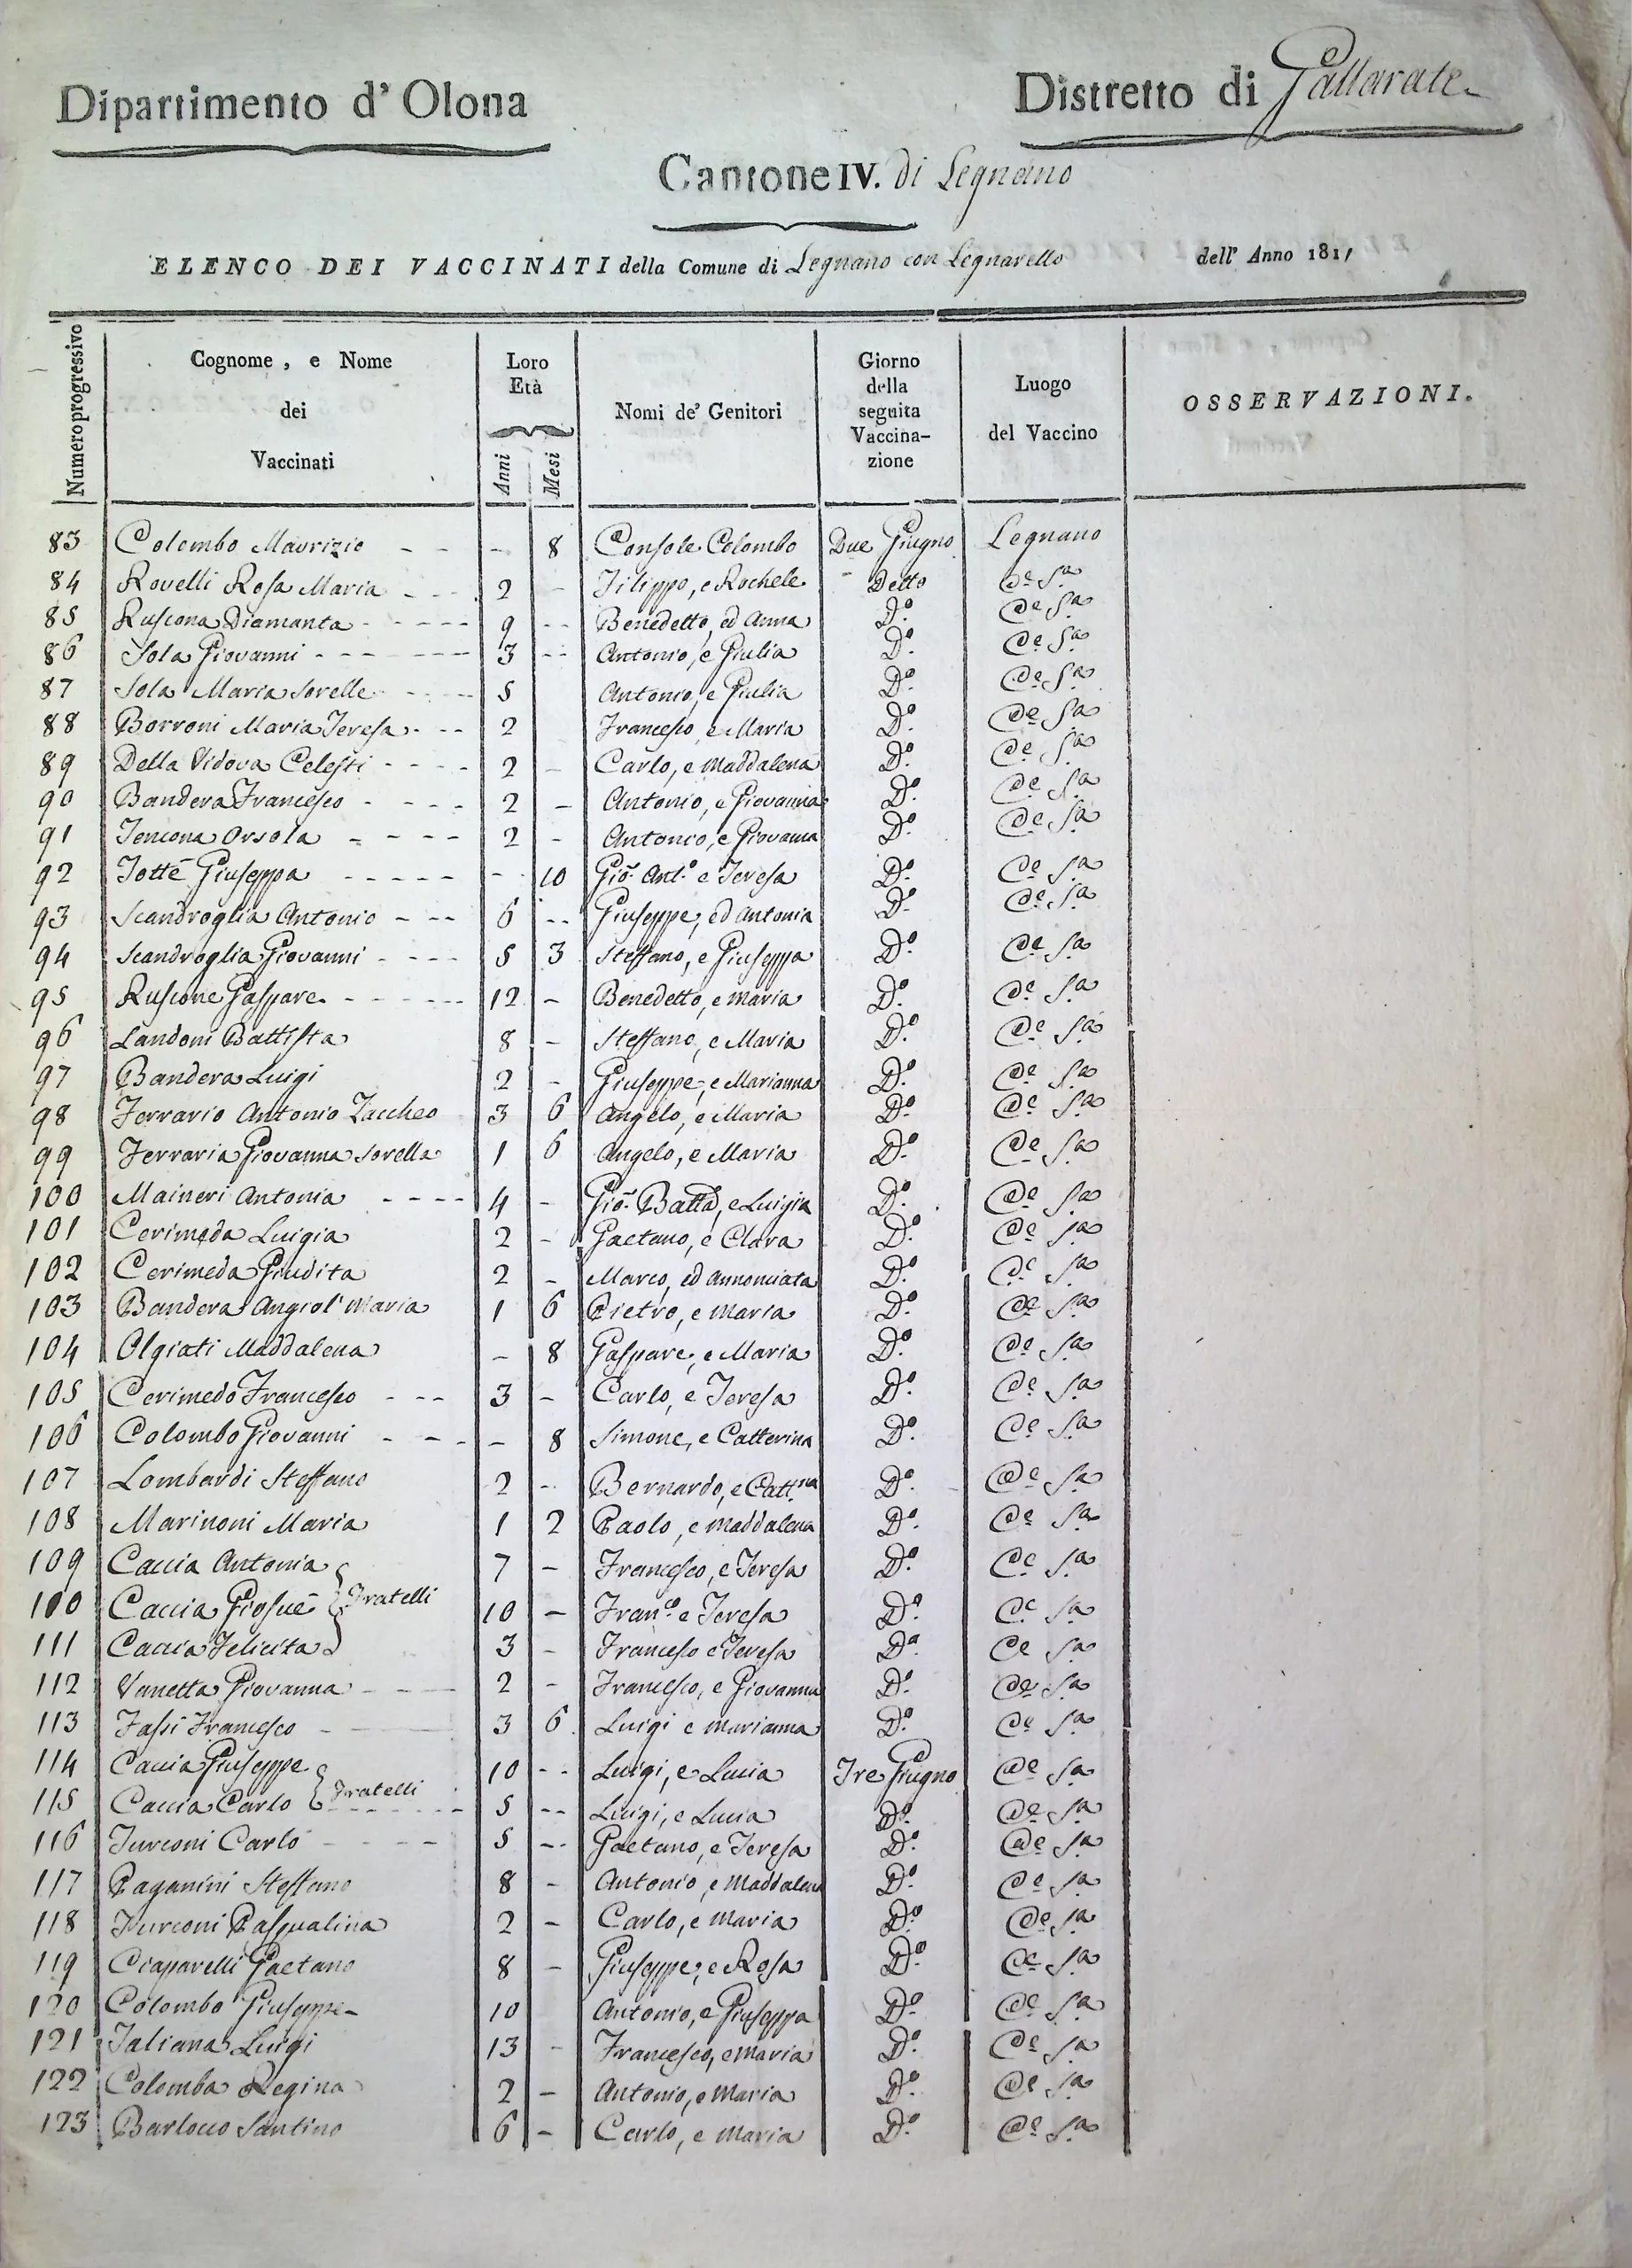 Dipartimento d' Olona
Distretto di Gallarate
Cantone IV. di Legnano
ELENCO DEI VACCINATI della Comune di Legnano con Legnarello dell' Anno 1811
Numero progressivo
Cognome, e Nome dei Vaccinati
Loro Età
Anni
Mesi
Nomi de' Genitori
Giorno della seguita Vaccina-zione
Luogo del Vaccino
OSSERVAZIONI.
83 Colombo Maurizio - - - 8 Console Colombo Due Giugno Legnano
84 Rovelli Rosa Maria - - - 2 - Filippo, e Rachele Detto Come Sa
85 Ruscona Diamanta - - - - 9 - - Benedetto, ed Anna D.o
86 Sola Giovanni - - - - - 3 - - Antonio, e Giulia D.o
87 Sola Maria Sorelle - - - 5 Antonio, e Giulia D.o
88 Borroni Maria Teresa - - - 2 Francesco, e Maria D.o
89 Della Vidova Celesti - - - - 2 - Carlo, e Maddalena D.o
90 Bandera Francesco - - - - 2 - Antonio, e Giovanna D.o
91 Tencona Orsola - - - - 2 - Antonio, e Giovanna D.o
92 Giuseppa - - - - - - 10 Gio. Ant.o e Teresa D.o
93 Scandroglia Antonio - - - 6 - - Giuseppe, ed Antonia D.o
94 Scandroglia Giovanni - - - - 5 3 Steffano, e Giuseppa D.o
95 Ruscone Gaspare - - - - - 12 - Benedetto, e Maria D.o
96 Landoni Battista 8 - Steffano, e Maria D.o
97 Bandera Luigi 2 - Giuseppe, e Marianna D.o
98 Ferrario Antonio Zaccheo 3 6 Angelo, e Maria D.o
99 Ferraria Giovanna Sorella 1 6 Angelo, e Maria D.o
100 Maineri Antonia - - - - 4 - Gio. Batta, e Luigia D.o
101 Cerimeda Luigia 2 - Gaetano, e Clara D.o
102 Cerimeda Giudita 2 - Marco, ed Annonciata D.o
103 Bandera Angiol' Maria 1 6 Pietro, e Maria D.o
104 Olgiati Maddalena - 8 Gaspare, e Maria D.o
105 Cerimedo Francesco - - - 3 - Carlo, e Teresa D.o
106 Colombo Giovanni - - - - 8 Simone, e Catterina D.o
107 Lombardi Steffano 2 - Bernardo, e Catt.na D.o
108 Marinoni Maria 1 2 Paolo, e Maddalena D.o
109 Caccia Antonia 7 - Francesco, e Teresa D.o
100 Caccia Giosuè Fratelli 10 - Fran.o e Teresa D.o
111 Caccia Felicita 3 - Francesco e Teresa D.o
112 Vanetta Giovanna - - - 2 - Francesco, e Giovanna D.o
113 Fassi Francesco - - 3 6 Luigi e Marianna D.o
114 Caccia Giuseppe 10 - - Luigi, e Lucia Tre Giugno
115 Caccia Carlo Fratelli 5 - - Luigi, e Lucia D.o
116 Turconi Carlo - - - - 5 - - Gaetano, e Teresa D.o
117 Paganini Steffano 8 - Antonio, e Maddalena D.o
118 Turconi Pasqualina 2 - Carlo, e Maria D.o
119 Ciaparelli Gaetano 8 - Giuseppe, e Rosa D.o
120 Colombo Giuseppe 10 Antonio, e Giuseppa D.o
121 Taliana Luigi 13 - Francesco, e Maria D.o
122 Colomba Regina 2 - Antonio, e Maria D.o
123 Barlocco Santino 6 - Carlo, e Maria D.o